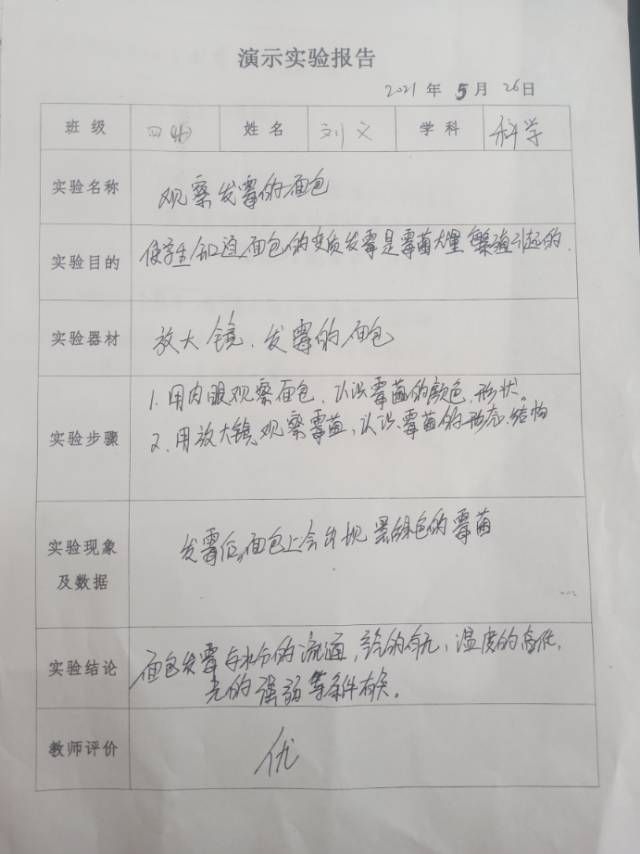 演示实验报告
2021 年 5 月 26 日
班级 四 姓名 刘文 学科 科学
实验名称 观察发霉的面包
实验目的 使学生知道,面包的变质发霉是霉菌大量繁殖引起的.
实验器材 放大镜、发霉的面包
1.用肉眼观察面包,认识霉菌的颜色、形状。
实验步骤 2.用放大镜观察霉菌,认识霉菌的形态、结构
实验现象 发霉后,面包上会出现黑绿色的霉菌
及数据
实验结论 面包发霉与水分的流通,的有无,温度的高低,
光的强弱等条件有关。
教师评价 优